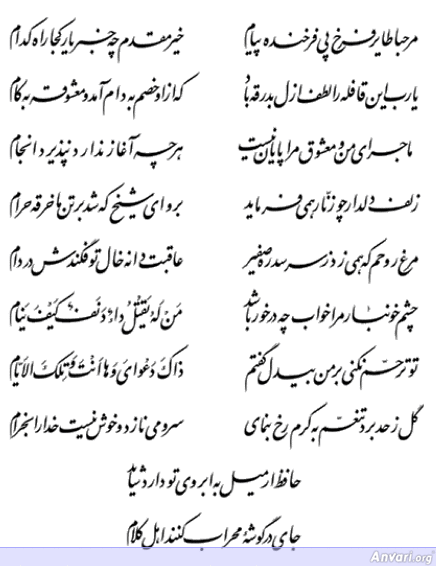 مرحبا طایر فرخ پی فرخنده پیام خیر مقدم چه خبر یار کجا راه کدام
یا رب این قافله را لطف ازل بدرقه باد که از او خصم به دام آمد و معشوقه به کام
ماجرای من و معشوق مرا پایان نیست هر چه آغاز ندارد نپذیرد انجام
زلف دلدار چو زنار همی فرماید برو ای شیخ که شد بر تن ما خرقه حرام
مرغ روحم که همی زد ز سر سدره صفیر عاقبت دانه خال تو فکندش در دام
چشم خونبار مرا خواب چه درخور باشد مَنْ لَهُ یَقْتُلُ داءٌ دَنَفٌ کَیْفَ یَنام
تو ترحم نکنی بر من بیدل گفتم ذاکَ دَعْوایَ وَ ها اَنْتَ وَ تِلْکَ الاَیّام
گل ز حد برد تنعم به کرم رخ بنمای سرو می‌نازد و خوش نیست خدا را بخرام
حافظ ار میل به ابروی تو دارد شاید
جای در گوشهٔ محراب کنند اهل کلام
Anvari.org